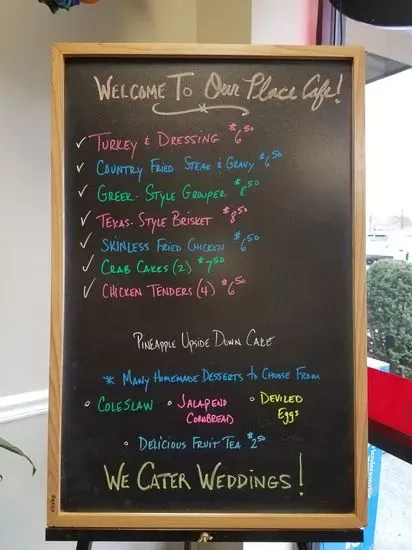 Welcome To Our Place Cafe!
✓ Turkey & Dressing $6.50
✓ Country Fried Steak & Gravy $6.50
✓ Greek-Style Grouper $8.50
✓ Texas-Style Brisket $8.50
✓ Skinless Fried Chicken $6.50
✓ Crab Cakes (2) $7.50
✓ Chicken Tenders (4) $6.50
Pineapple Upside Down Cake
* Many Homemade Desserts to Choose From
° Coleslaw ° Jalapeno Cornbread ° Deviled Eggs
° Delicious Fruit Tea $2.50
We Cater Weddings!